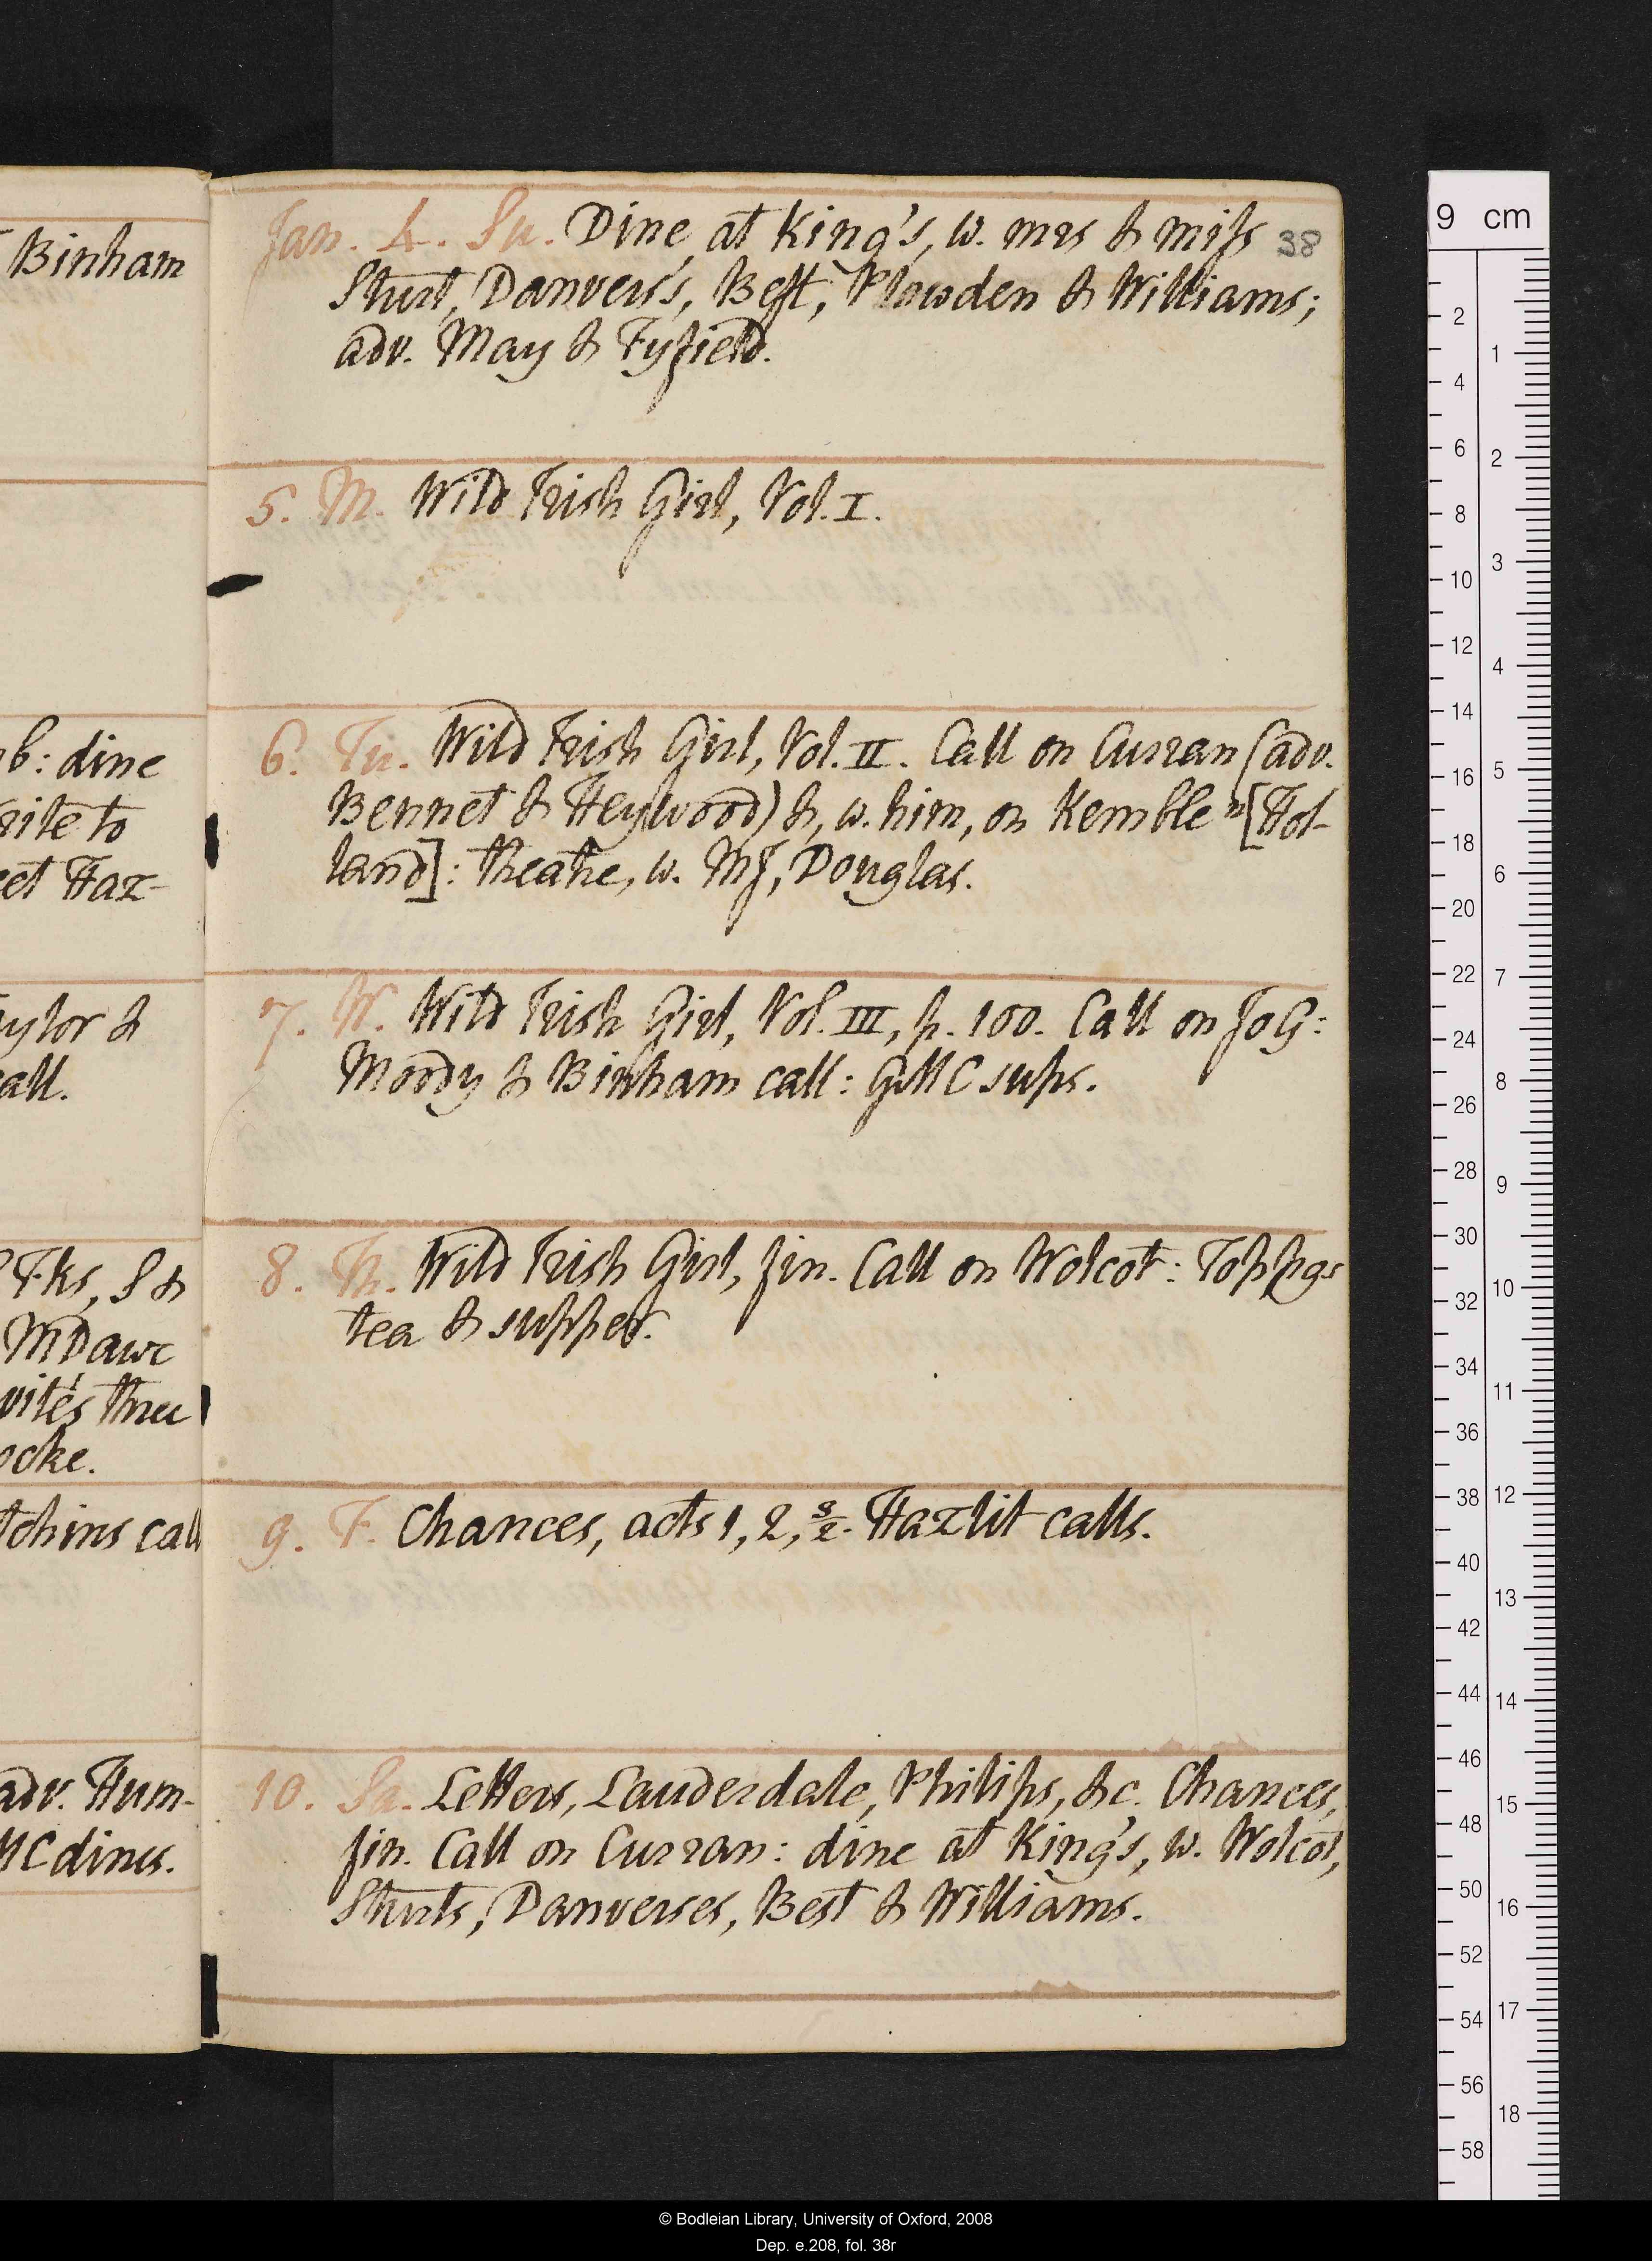 Binham
b: dine
rite to
et Haz-
aylor &
call.
Fks, S &
M Dawe
vités three
ocke.
tchins call
adv. Hum-
MC dines.
Jan. 4. Su. Dine, at King's, w. mrs & miss 38
Sturt, Danvers's, Best, Plowden & Williams;
adv. May & Fyfield.
5. M. Wild Irish Girl, Vol. I.
6. Tu. Wild Irish Girl, Vol. II. Call on Curran (adv.
Bennet & Heywood) &, w. him, on Kemble n [Hol-
land]: theatre, w. MJ, Douglas.
7. W. Wild Irish Girl, Vol. III, p. 100. Call on Jo G:
Moody & Binham call: GMC sups.
8. Th. Wild Irish Girl, fin. Call on Wolcot: Toppgs
tea & supper.
9. F. Chances, acts 1, 2, 3/2. Hazlit calls.
10. Sa. Letters, Lauderdale, Philips, &c. Chances,
fin. Call on Curran: dine at King's, w. Wolcot,
Sturts, Danverses, Best & Williams.
9 cm
2
4
6
8
10
12
14
16
18
20
22
24
26
28
30
32
34
36
38
40
42
44
46
48
50
52
54
56
58
1
2
3
4
5
6
7
8
9
10
11
12
13
14
15
16
17
18
© Bodleian Library, University of Oxford, 2008
Dep. e.208, fol. 38r